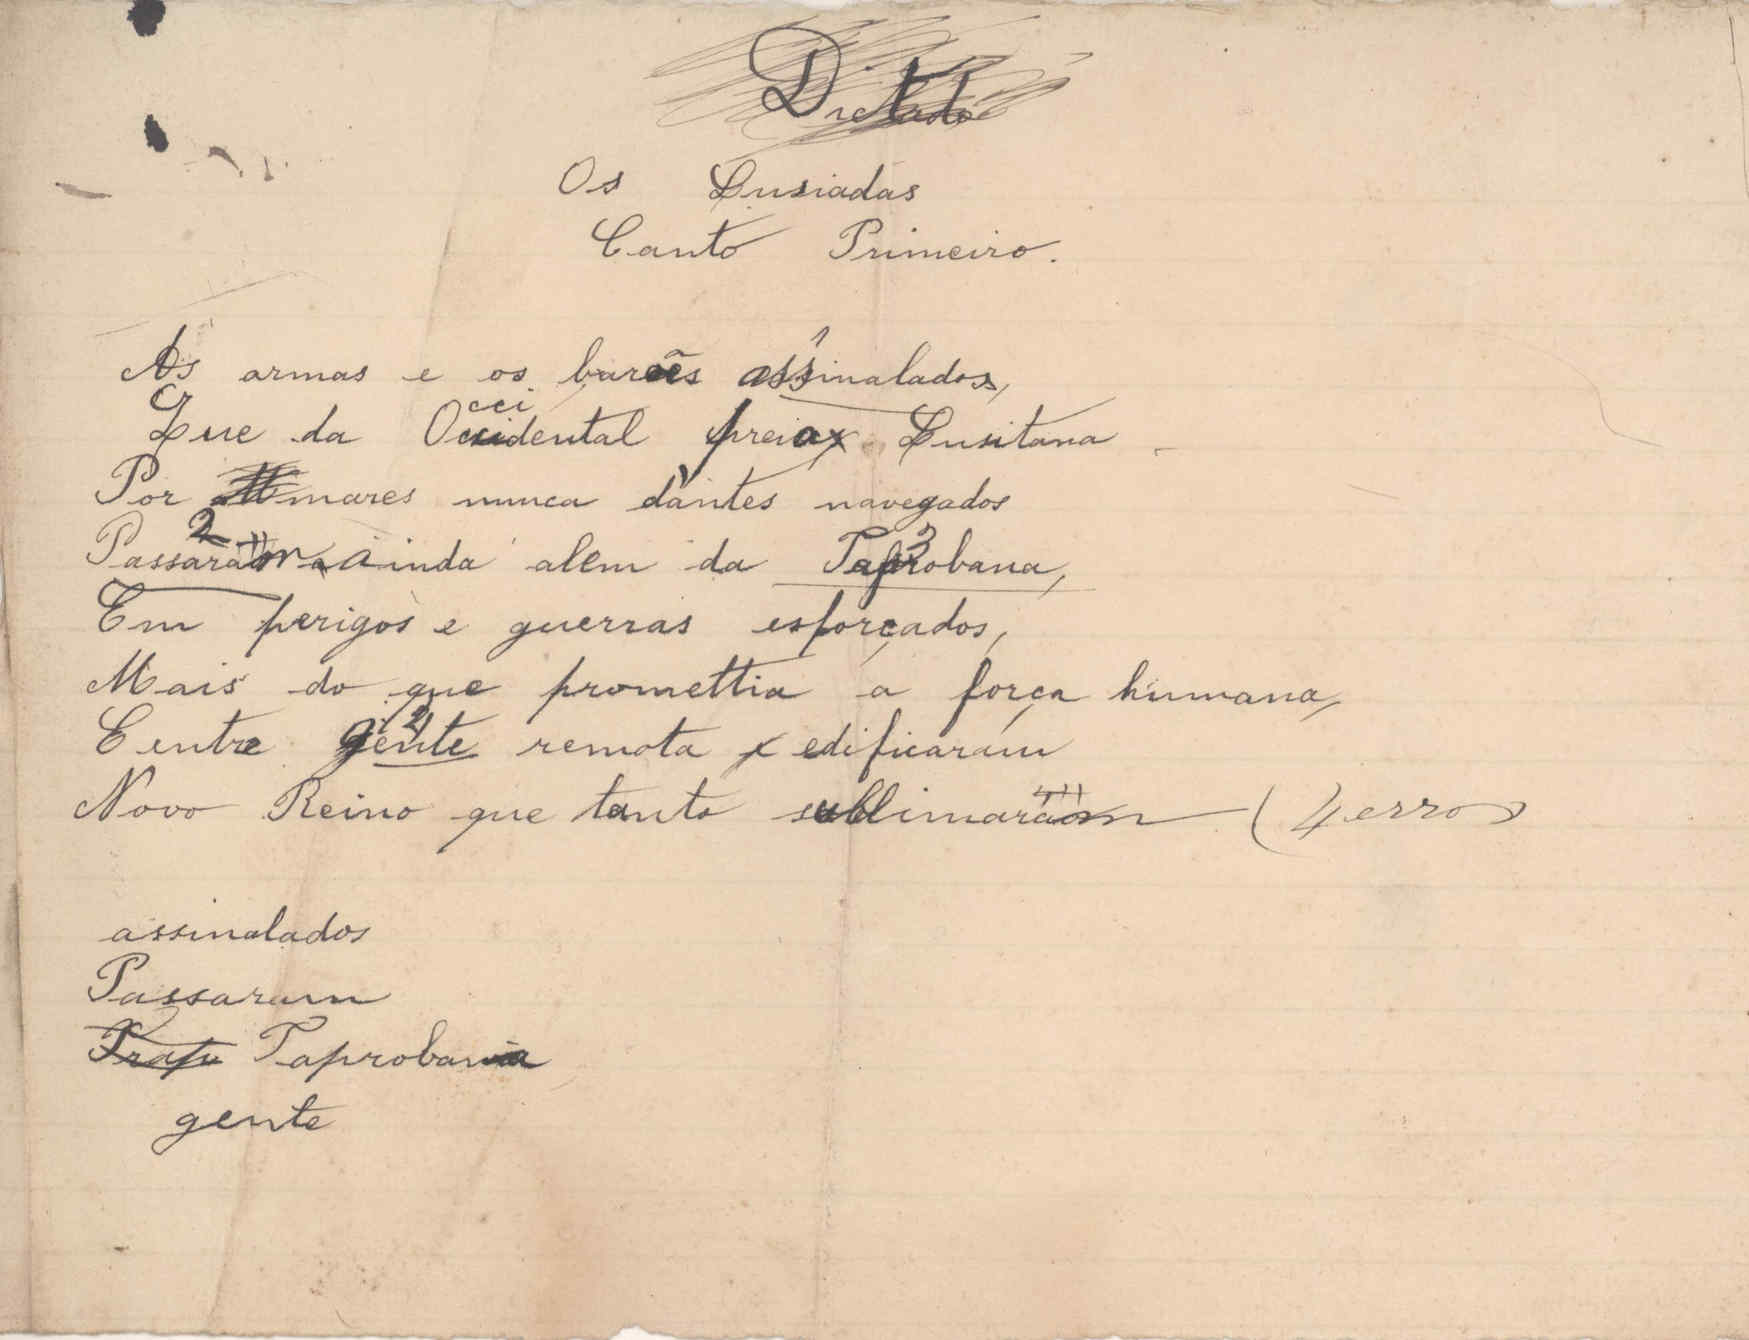 Dictado
Os Lusiadas
Canto Primeiro.
As armas e os barões assinalados,
Que da Occidental preia Lusitana
Por mares nunca dantes navegados
Passaram ainda alem da Taprobana,
Em perigos e guerras esforçados,
Mais do que promettia a força humana,
E entre gente remota edificaram
Novo Reino que tanto sublimaram (4 erros
assinalados
Passaram
Taprobana
gente